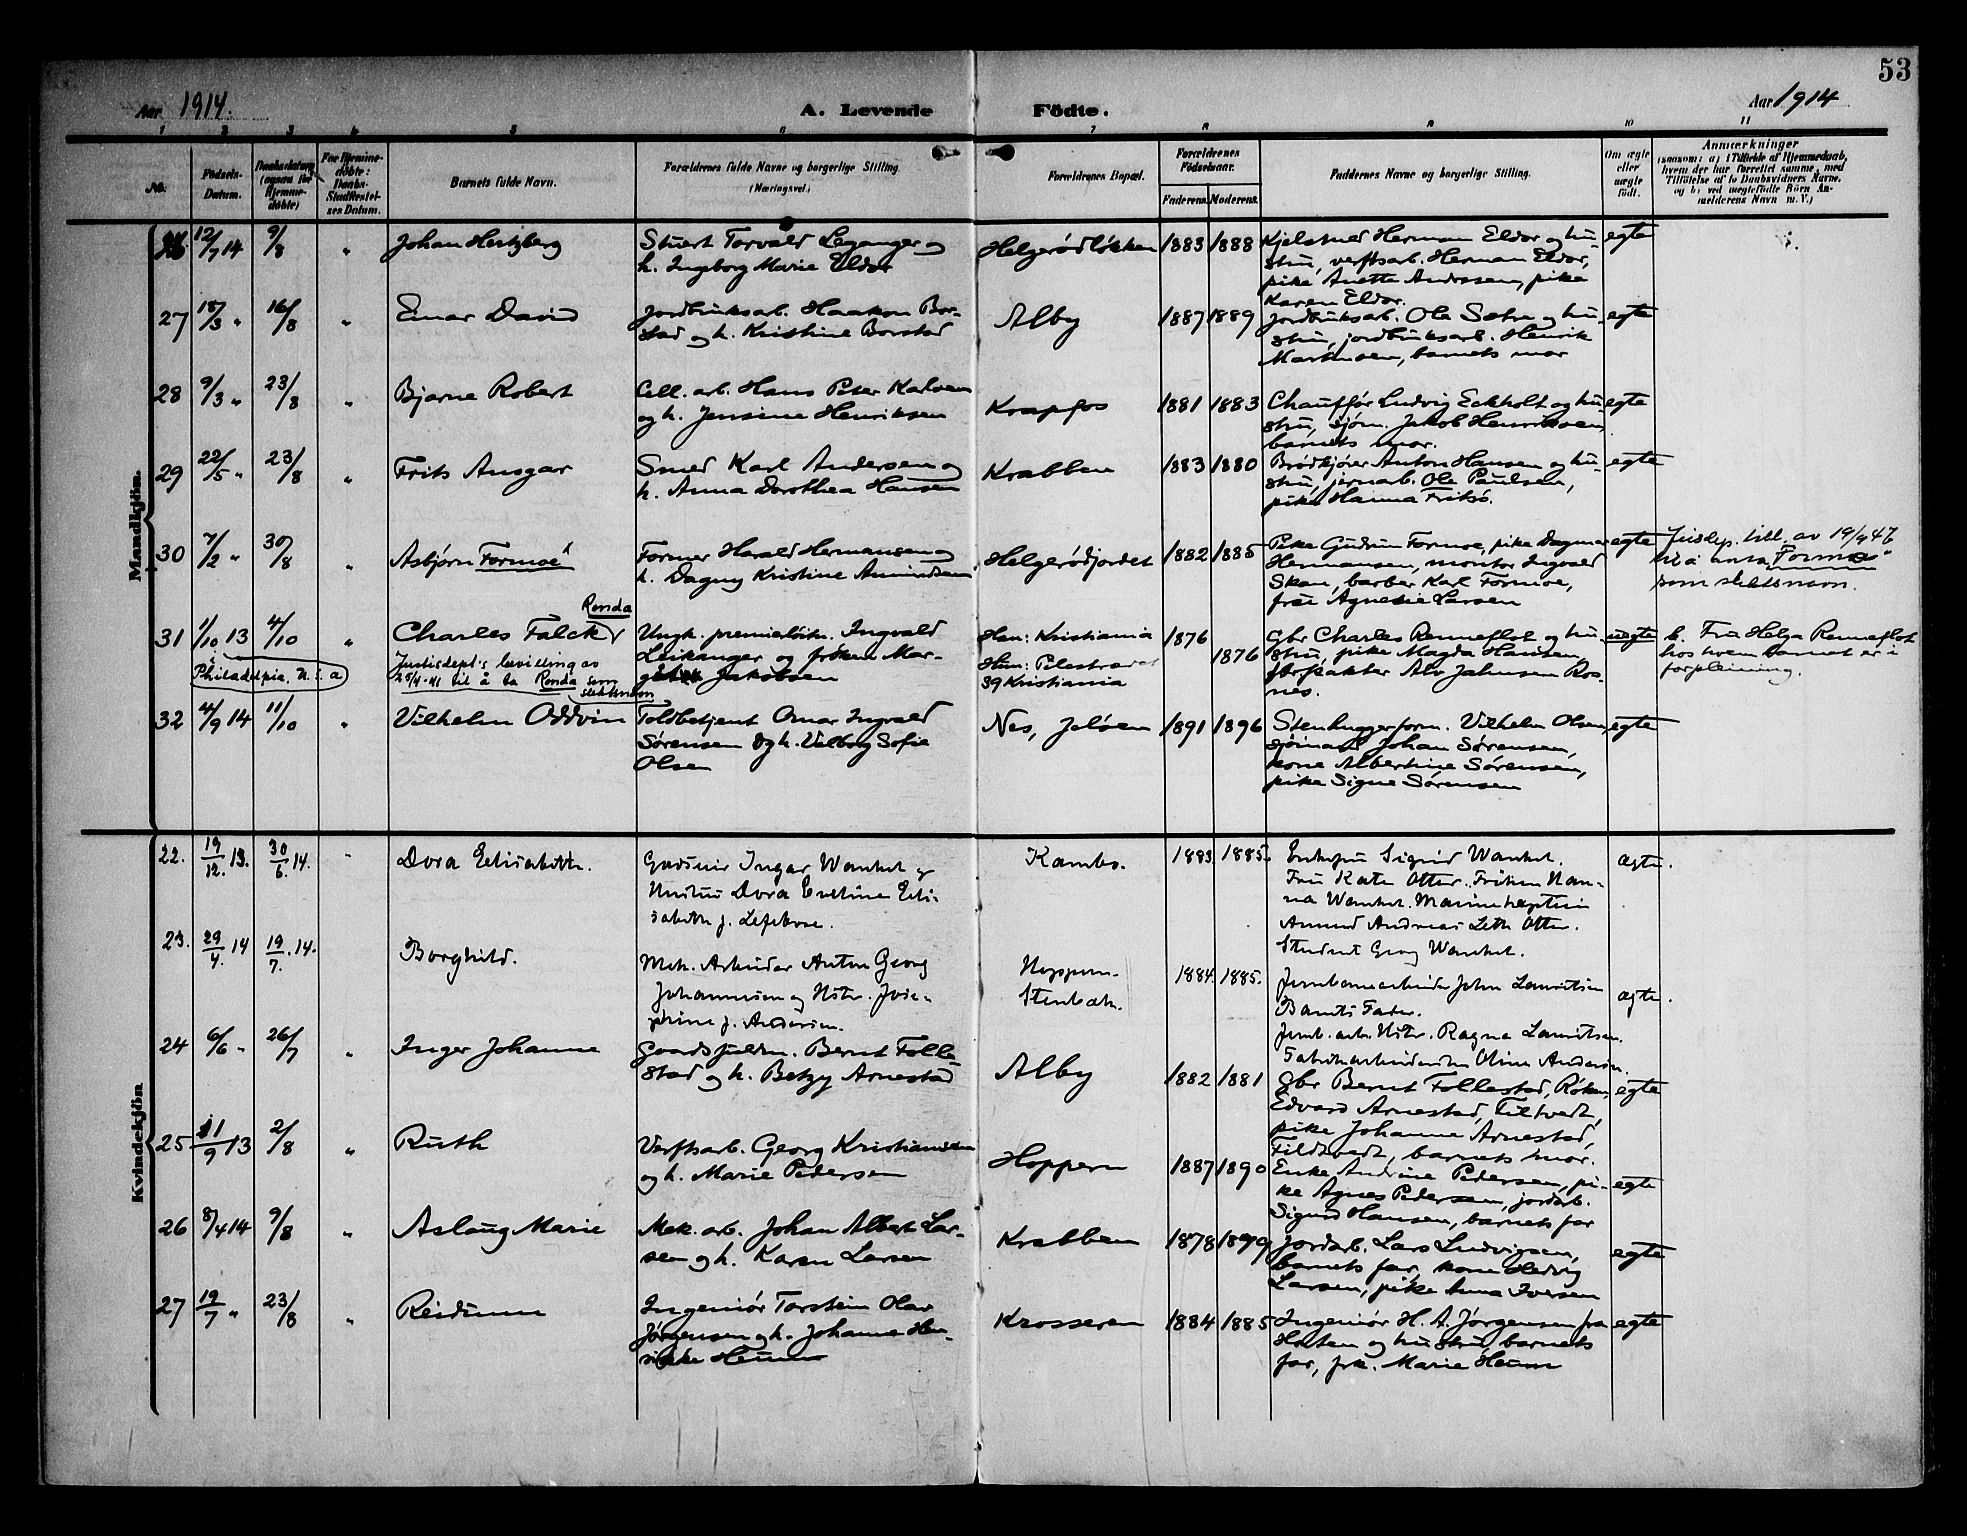 53
Aar 1914.
A. Levende Födte.
Aar 1914
1 2 3 4 5 6 7 8 9 10 11
No.
Födsels-
Datum.
Barnets fulde Navn.
Forældrenes fulde Navne og borgerlige Stilling
(Næringsvei)
Forældrenes Bopæl.
Forældrenes
Födselsaar.
Faderens. Moderens.
Faddernes Navne og borgerlige Stilling.
Om ægte
eller
uægte
født.
Anmærkninger
Mandkjön.
26 12/7 14 9/8 " Johan Hertzberg
Stuert Torvald Leganger og
h. Ingeborg Marie Eldor
Helgerødløkken 1883 1888
Kjelsmed Herman Eldor og hu-
stru, verftsarb. Herman Eldor,
pike Anette Andersen, pike
Karen Eldor.
egte
27 18/3 " 16/8 " Einar David
Jordbruksarb. Haakon Bor-
stad og h. Kristine Borstad
Alby 1887 1889
Jordbruksarb. Ole Sætre og hu-
stru, jordbruksarb. Henrik
Martinsen, barnets mor
egte
28 9/3 " 23/8 " Bjarne Robert
Cell. arb. Hans Peter Karlsen
og h. Jensine Henriksen
Krapfos 1881 1883
Chauffør Ludvig Eckholt og hu-
stru, sjøm. Jakob Henriksen,
barnets mor.
egte
29 22/5 " 23/8 " Frits Ansgar
Smed Karl Andersen og
h. Anna Dorothea Hansen
Krabben 1883 1880
Brødkjører Anton Hansen og hu-
stru, jernarb. Ole Paulsen,
pike Hanna Fritsø.
egte
30 7/2 " 30/8 " Asbjørn Formoe
Former Harald Hermansen og
h. Dagny Kristine Amundsen
Helgerødjordet 1882 1885
Pike Gudrun Formoe, pike Dagmar
Hermansen, montør Ingvald
Skau, barber Karl Formoe,
frú Agnesie Larsen
egte
Jusdep. till. av 19/9 47
til å anta "Formoe"
som slektsnavn.
31 1/10 13 4/10 " Charles Falck Ronda
i Philadelpia, U.S.a
Justisdept's bevilling av
25/4-41 til å ta Ronda som
slektsnavn
Ungk. premierløitn. Ingvald
Leikanger og frøken Mar-
grethe Jakobsen
Han: Kristiania
Hun: Pilestrædet
39 Kristiania
1876 1876
Gbr Charles Renneflot og hu-
stru, pike Magda Hansen,
forpakter Alv Jahnsen Ros-
nes.
uegte
b. Fru Helga Renneflot
hos hvem barnet er i
forpleining.
32 4/9 14 11/10 " Vilhelm Oddvin
Toldbetjent Omar Ingvald
Sørensen og h. Valborg Sofie
Olsen
Nes, Jeløen 1891 1896
Stenhuggerform. Vilhelm Olsen,
sjømand Johan Sørensen,
kone Albertine Sørensen,
pike Signe Sørensen
egte
Kvindekjön
22. 19/12. 13. 30/6. 14. " Dora Elisabeth.
Gaardeier Ingar Wankel og
Hustru Dora Eveline Eli-
sabeth f. Lefebvre.
Kambo. 1883. 1885.
Enkefru Sigrid Wankel.
Fru Kate Otter. Frøken Nan-
na Wankel. Marinekaptein
Amund Andreas Leth Otter.
Student Georg Wankel.
ægte.
23. 29/4. 14 19/7. 14. Borghild.
Mek. Arbeider Anton Georg
Johannesen og Hstr. Jose-
phine f. Andersen.
Hoppern-
Stenbæk.
1884. 1885.
Jernbanearbeider John Lauritsen
Barnets Fader.
Jernb. arb. Hstr. Ragna Lauritsen.
Fabrikarbeiderske Oline Andersen.
ægte.
24 6/6 " 26/7 " Inger Johanne
Gaardsfuldm. Bernt Folle-
stad og h. Betzy Arnestad
Alby 1882 1881
Gbr Bernt Follestad, Røken,
Edvard Arnestad, Filtvedt,
pike Johanne Arnestad,
Fildtvedt, barnets mor.
egte
25 11/9 13 2/8 " Ruth
Verftsarb. Georg Kristiansen
og h. Marie Pedersen
Hoppern 1887 1890
Enke Andrine Pedersen, pi-
ke Agnes Pedersen, jordarb.
Sigurd Hansen, barnets far
egte
26 8/4 14 9/8 " Aslaug Marie
Mek. arb. Johan Albert Lar-
sen og h. Karen Larsen
Krabben 1878 1879
Jordarb. Lars Ludvigsen,
barnets far, kone Hedvig
Larsen, pike Anna Iversen
egte
27 19/7 " 23/8 " Reidunn
Ingeniør Torstein Olav
Jørgensen og h. Johanne Hen-
rikke Heum
Krosseren 1884 1885
Ingeniør H. A. Jørgensen fra
Horten og hustru, barnets
far, frk. Marie Heum
egte